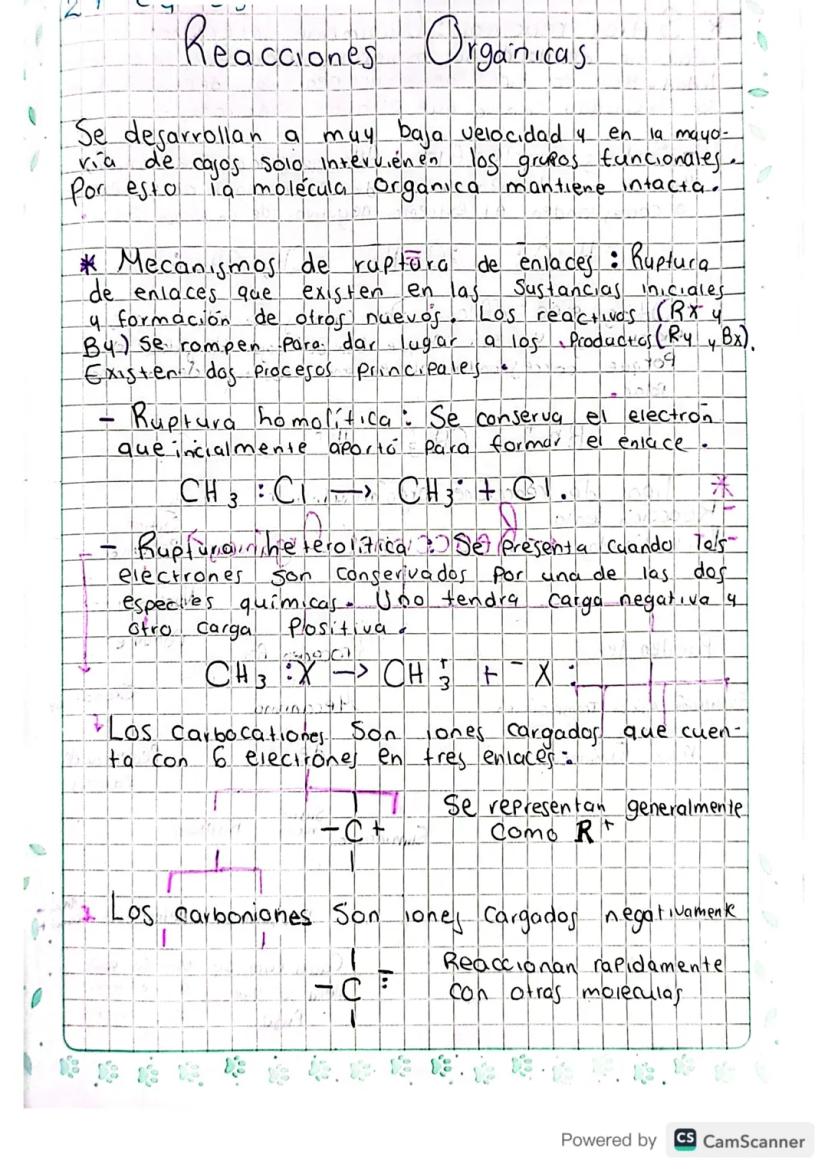 Reacciones Orgánicas
Se desarrollan a muy baja velocidad y en la mayo-
ría de casos solo intervienen los grupos funcionales.
Por esto la molécula orgánica mantiene intacta.
* Mecanismos de ruptura de enlaces : Ruptura
de enlaces que existen en las sustancias iniciales
y formación de otros nuevos. Los reactivos (RX y
By) se rompen para dar lugar a los productos (Ry y Bx).
Existen dos procesos principales.
- Ruptura homolítica: Se conserva el electron
que incialmente aportó para formar el enlace.
CH3 : Cl → CH3· + Cl.
- Ruptura heterolítica: Se presenta cuando los
electrones son conservados por una de las dos
especies químicas. Uno tendra carga negativa y
otro carga positiva.
CH3 :X → CH3+ + -X :
Los carbocationes son iones cargados que cuen-
ta con 6 electrones en tres enlaces:
Se representan generalmente
-C+ como R+
Los carboniones son iones cargados negativamente
Reaccionan rapidamente
-C:- con otras moleculas
Powered by CS CamScanner